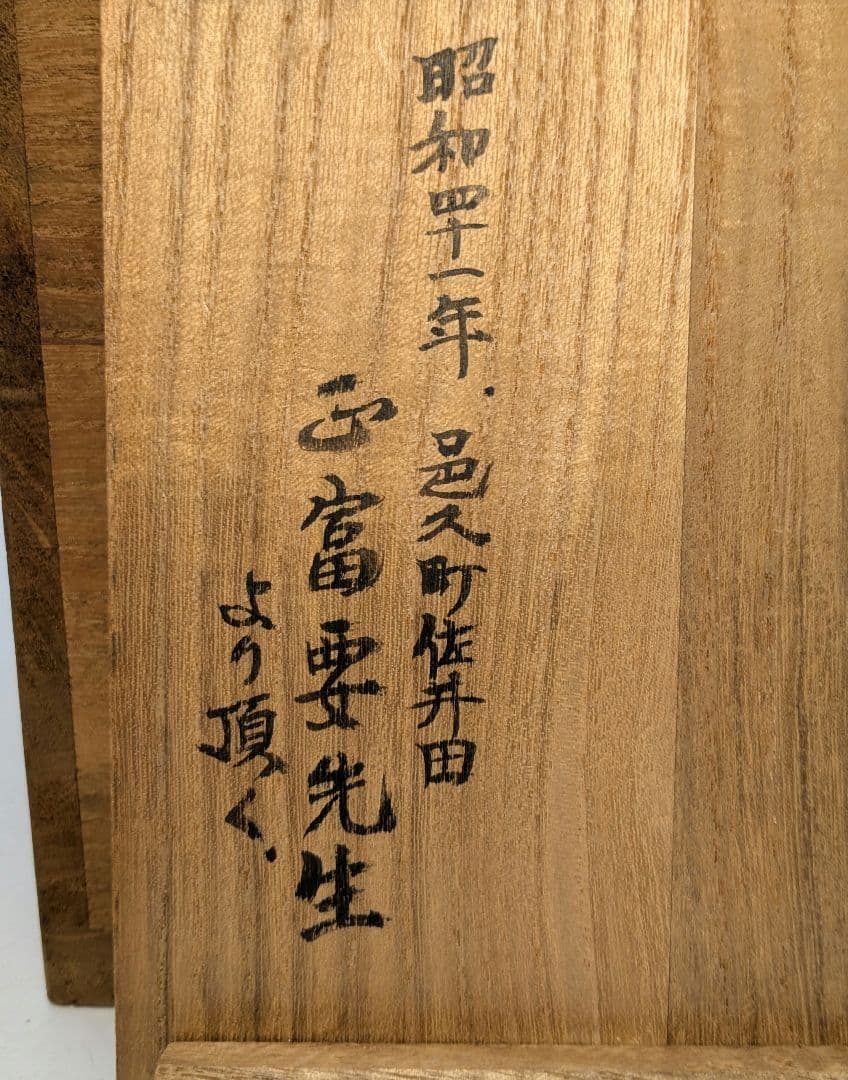 昭和四十一年.邑久町佐井田
正富要先生
より頂く.